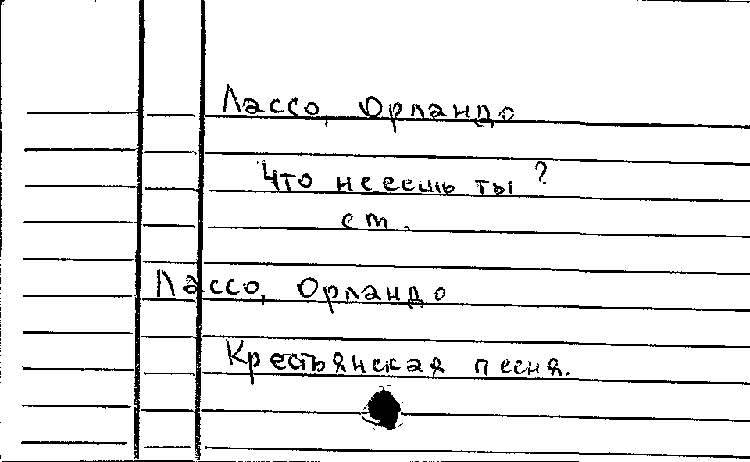 Лассо, Орландо
Что несешь ты?
ст.
Лассо, Орландо
Крестьянская песня.